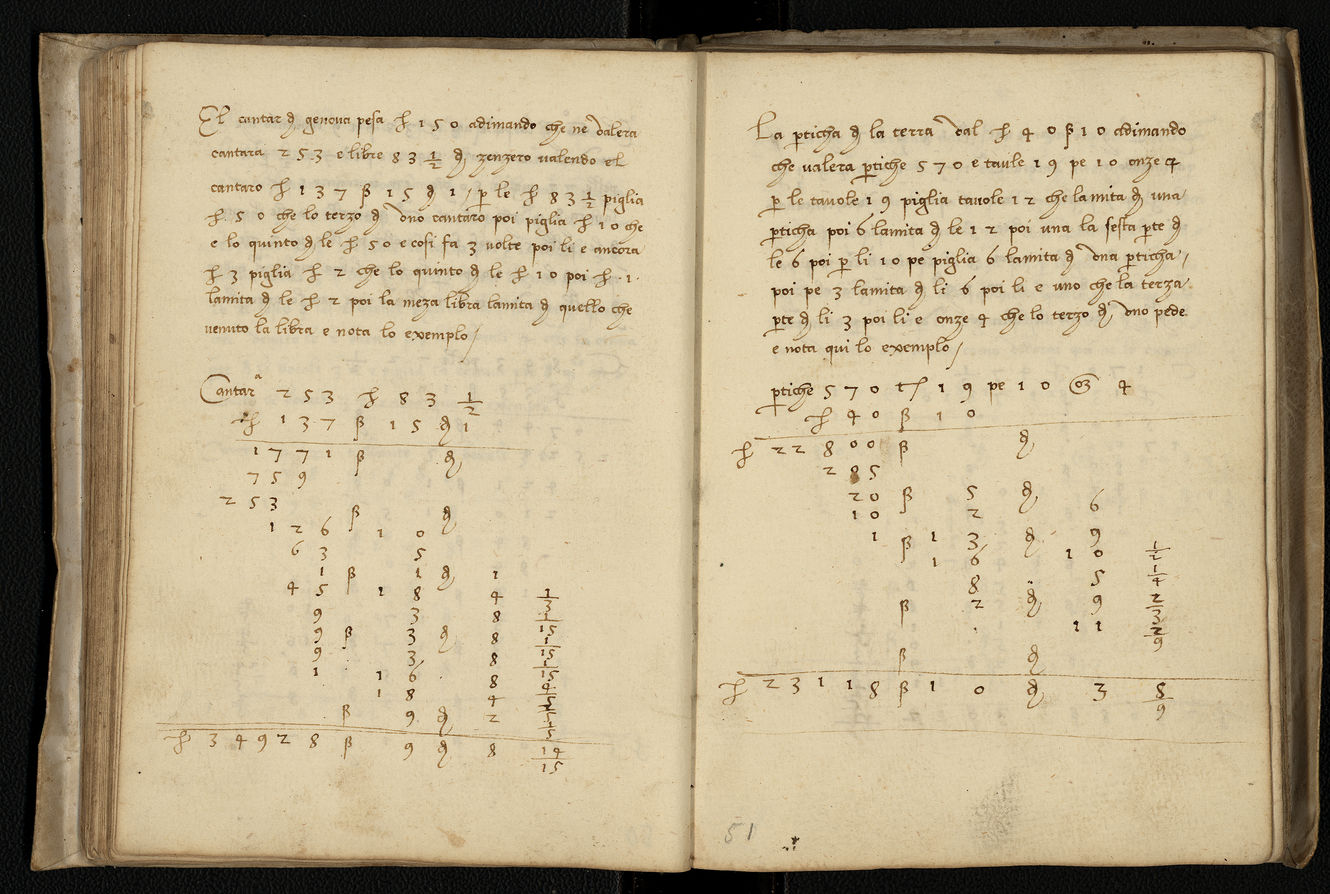 El cantar ꝺ genova pesa ℔ 1 5 0 adimando che ne valera
cantara 2 5 3 e libre 8 3 1/2 ꝺ zenzero valendo el
cantaro ℔ 1 3 7 ß 1 5 ꝺ 1 / p le ℔ 8 3 1/2 piglia
℔ . 5 0 che lo terzo ꝺ vno cantaro poi piglia ℔ 1 0 che
e lo quinto ꝺ le ℔ 5 0 e cosi fa 3 volte poi li e ancora
℔ 3 piglia ℔ 2 che lo quinto ꝺ le ℔ 1 0 poi ℔ . 1 .
la mita ꝺ le ℔ 2 poi la meza libra la mita ꝺ quello che
venuto la libra e nota lo exemplo /
Cantar a 2 5 3 ℔ 8 3 1/2
℔ 1 3 7 ß 1 5 ꝺ 1
1 7 7 1 ß ꝺ
7 5 9
2 5 3
ß ꝺ
1 2 6 1 0
6 3 5
1 ß 1 ꝺ 1
4 5 1 8 4 1/3
9 3 8 1/15
9 ß 3 ꝺ 8 1/15
9 3 8 1/15
1 1 6 8 4/5
1 8 4 2/5
ß 9 ꝺ 2 1/5
℔ 3 4 9 2 8 ß 9 ꝺ 8 14/15
La pticha ꝺ la terra val ℔ 4 0 ß 1 0 adimando
che valera ptiche 5 7 0 e taule 1 9 pe 1 0 onze 4
p le tavole 1 9 piglia tavole 1 2 che la mita ꝺ una
pticha poi 6 la mita ꝺ le 1 2 poi una la sesta pte ꝺ
le 6 poi p li 1 0 pe piglia 6 la mita ꝺ vna pticha /
poi pe 3 la mita ꝺ li 6 poi li e uno che la terza
pte ꝺ li 3 poi li e onze 4 che lo terzo ꝺ vno pede
e nota qui lo exemplo /
ptiche 5 7 0 t 1 9 pe 1 0 oz 4
℔ 4 0 ß 1 0
℔ 2 2 8 0 0 ß ꝺ
2 8 5
2 0 ß 5 ꝺ
1 0 2 6
1 ß 1 3 ꝺ 9
1 6 1 0 1/2
8 5 1/4
ß 2 ꝺ 9 2/3
. 1 1 2/9
ß ꝺ
℔ 2 3 1 1 8 ß 1 0 ꝺ 3 8/9
51